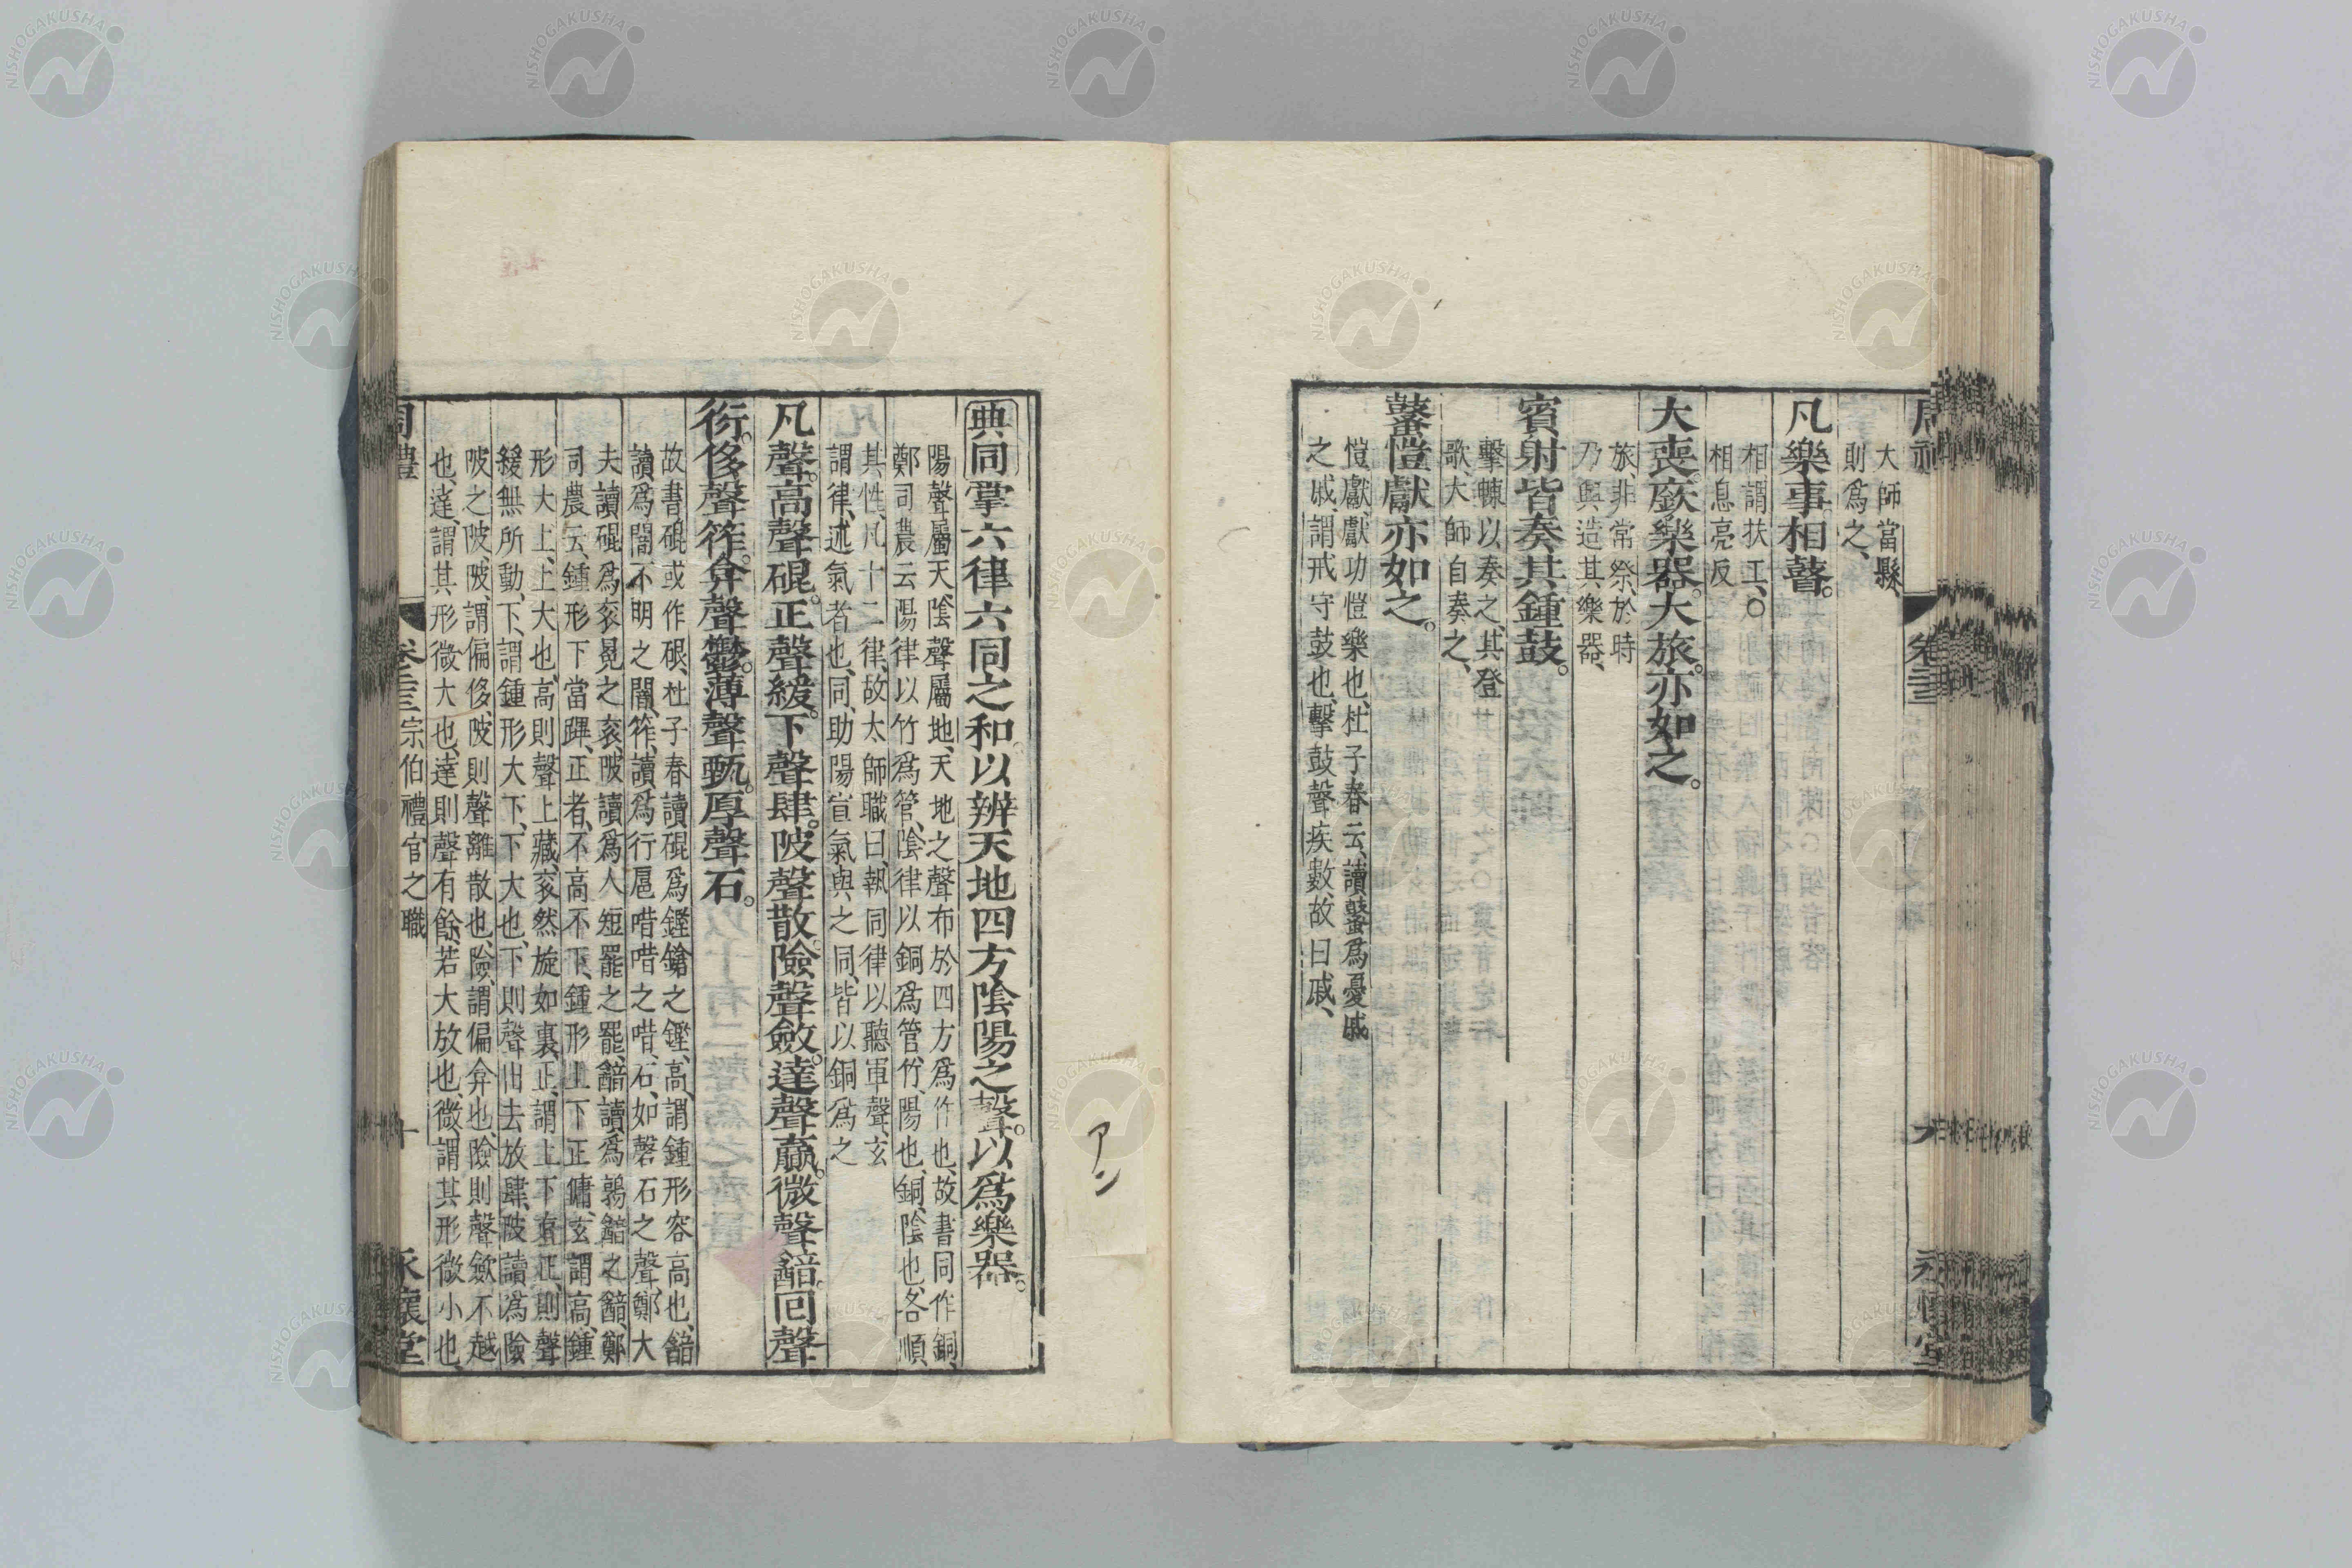 大師當縣
則爲之、
凡樂事。相瞽。
相謂扶工、○
相息亮反
大喪。廞樂器。大旅。亦如之。
旅、非常祭、於時
乃興造其樂器、
賓射皆奏其鍾鼓。
擊朄以奏之、其登
歌、大師自奏之、
鼜愷獻亦如之。
愷獻、獻功愷樂也、杜子春云、讀鼜爲憂戚
之戚、謂戒守鼓也、擊鼓聲疾數、故曰戚、
典同掌六律六同之和。以辨天地四方陰陽之聲。以爲樂器。
陽聲屬天、陰聲屬地、天地之聲布於四方爲作也、故書同作銅、
鄭司農云陽律以竹爲管、陰律以銅爲管、竹、陽也、銅、陰也、各順
其性、凡十二律、故太師職曰、執同律以聽軍聲、玄
謂律、述氣者也、同、助陽宣氣與之同、皆以銅爲之
凡聲。高聲䃂。正聲緩。下聲肆。陂聲散。險聲斂。達聲贏。微聲韽。回聲
衍。侈聲筰。弇聲鬱。薄聲甄。厚聲石。
故書䃂或作硍、杜子春讀䃂爲鏗鎗之鏗、高、謂鍾形容高也、韽
讀爲闇不明之闇、筰、讀爲行扈唶唶之唶、石、如磬石之聲、鄭大
夫讀䃂爲袞冕之袞、陂讀爲人短罷之罷、韽讀爲鶉䳺之韽、鄭
司農云、鍾形下當踔、正者、不高不下、鍾形上下正傭、玄謂高、鍾
形大上、上大也、高則聲上藏、袞然旋如裏、正、謂上下直正、則聲
緩無所動、下、謂鍾形大下、下大也、下則聲出去放肆、陂讀爲險
陂之陂、陂、謂偏侈、陂則聲離散也、險、謂偏弇也、險則聲斂不越
也、達、謂其形微大也、達則聲有餘、若大放也、微、謂其形微小也、
周禮 卷二三 宗伯禮官之職 十 永懷堂
アン